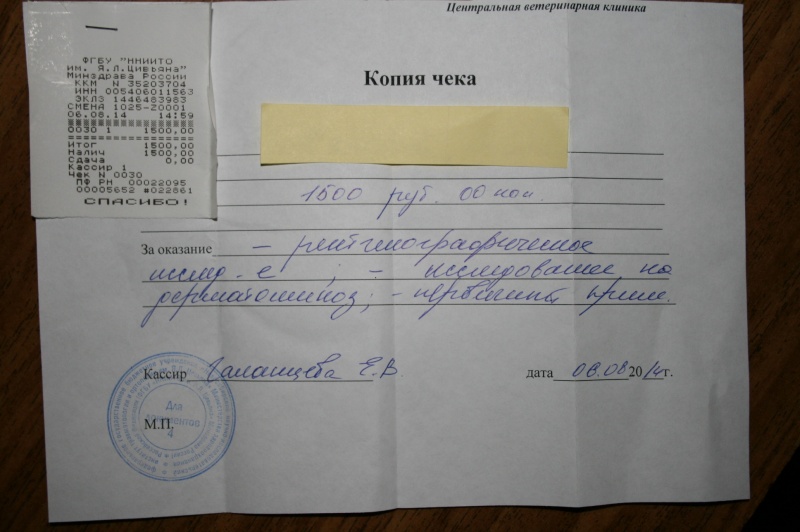 Центральная ветеринарная клиника
ФГБУ "ННИИТО
им. Я.Л.Цивьяна"
Минздрава России
ККМ N 35203704
ИНН 005406011563
ЭКЛЗ 1446483983
СМЕНА 1025-Z0001
06.08.14 14:59
0030 1 1500,00
Итог 1500,00
Налич 1500,00
Сдача 0,00
Кассир 1
Чек N 0030
ПФ РН 00022095
00005652 #022861
СПАСИБО!
Копия чека
1500 руб. 00 коп.
За оказание – рентгенографическое
исслед-е ; – исследование на
дерматомикоз; – первичный прием.
Кассир Галанцева Е.В. дата 06.08 2014г.
М.П.
Для
документов
4